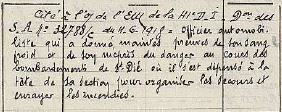 Cité à l'O/ de l'E.M. de la 41e D.I. Don des
S.A. N° 32788/ du 11.6.1918 = Officier automobi-
liste qui a donné maintes preuves de son sang
froid et de son mépris du danger au cours des
bombardements de St Dié où il s'est dépensé à la
tête de sa section pour organiser les secours et
enrayer les incendies.